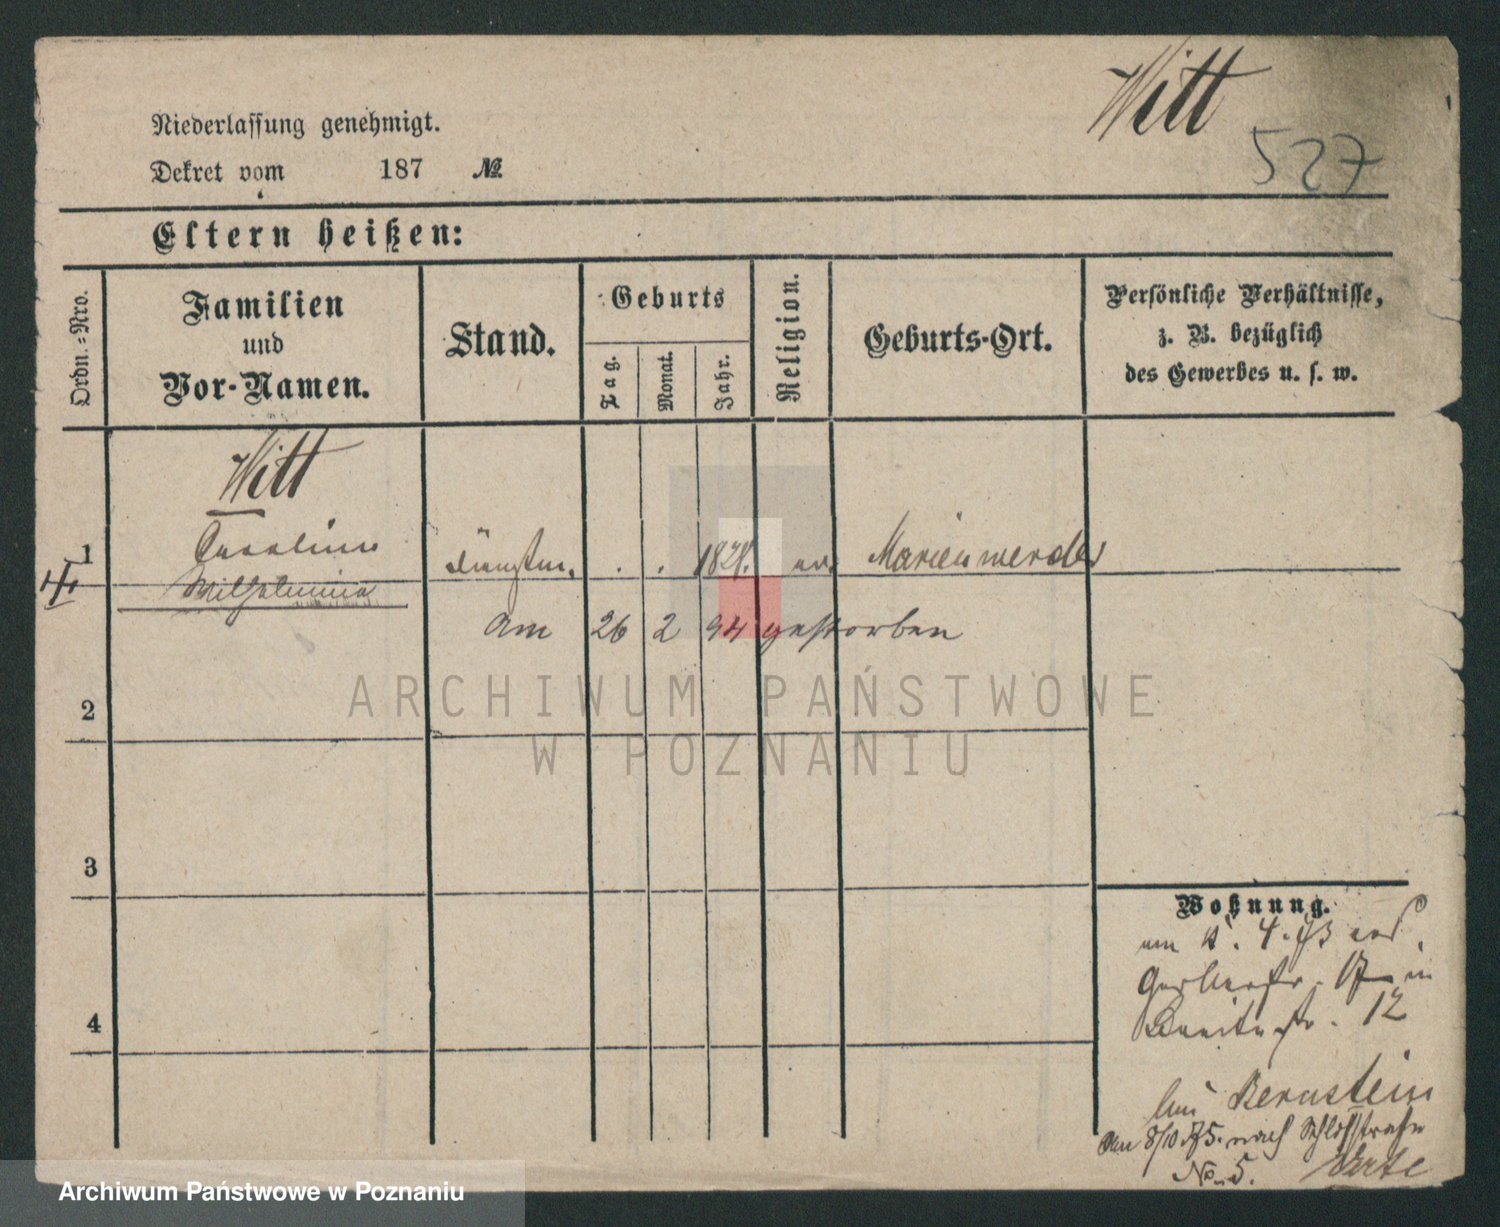 Witt
527
Niederlassung genehmigt.
Dekret vom 187 №
Eltern heißen:
Ordn.-Nro.
Familien
und
Vor-Namen.
Stand.
Geburts
Tag.
Monat.
Jahr.
Religion.
Geburts-Ort.
Persönliche Verhältnisse,
z. B. bezüglich
des Gewerbes u. s. w.
Witt
1 Caroline . . 182 ev. Marienwerder
Wilhelmina
am 26 2 94 gestorben
2
3
4
Wohnung.
am 4. 73
in
Breitestr. 12
bei Bernstein
Am 8/10 75. nach Schloßstraße
No. 5.
ARCHIWUM PAŃSTWOWE
W POZNANIU
Archiwum Państwowe w Poznaniu